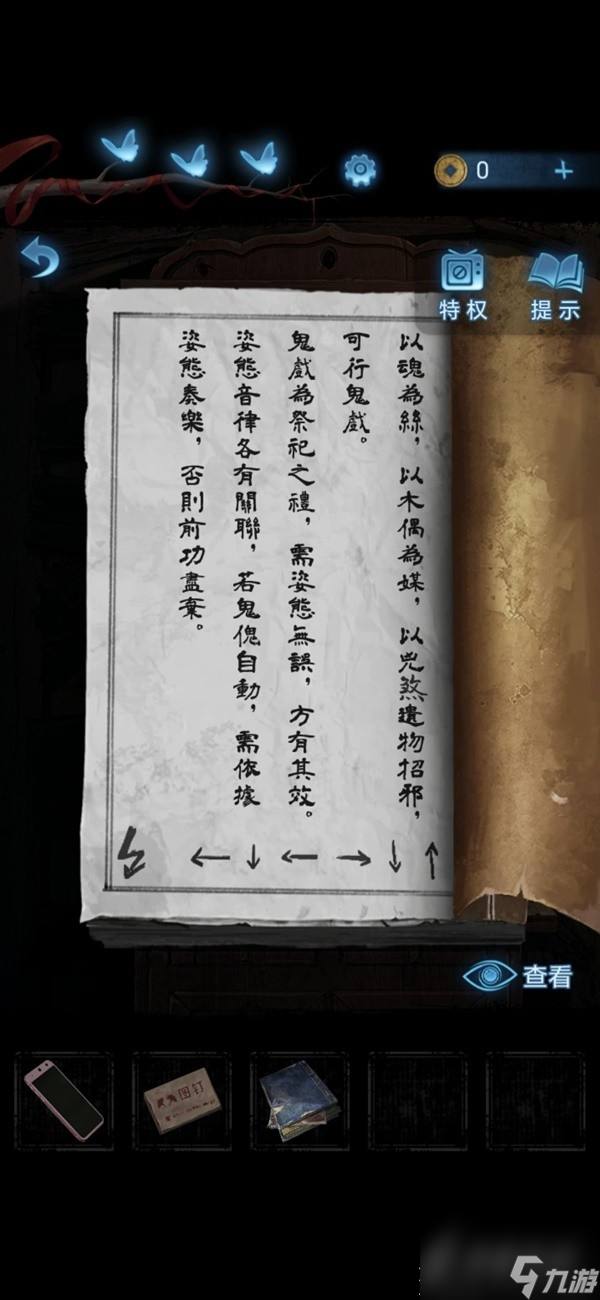 0
特权
提示
以魂為絲，以木偶為媒，以兇煞遺物招邪，
可行鬼戲。
鬼戲為祭祀之禮，需姿態無誤，方有其效。
姿態音律各有關聯，若鬼傀自動，需依據
姿態奏樂，否則前功盡棄。
↑↓→←↓←
查看
图钉
九游